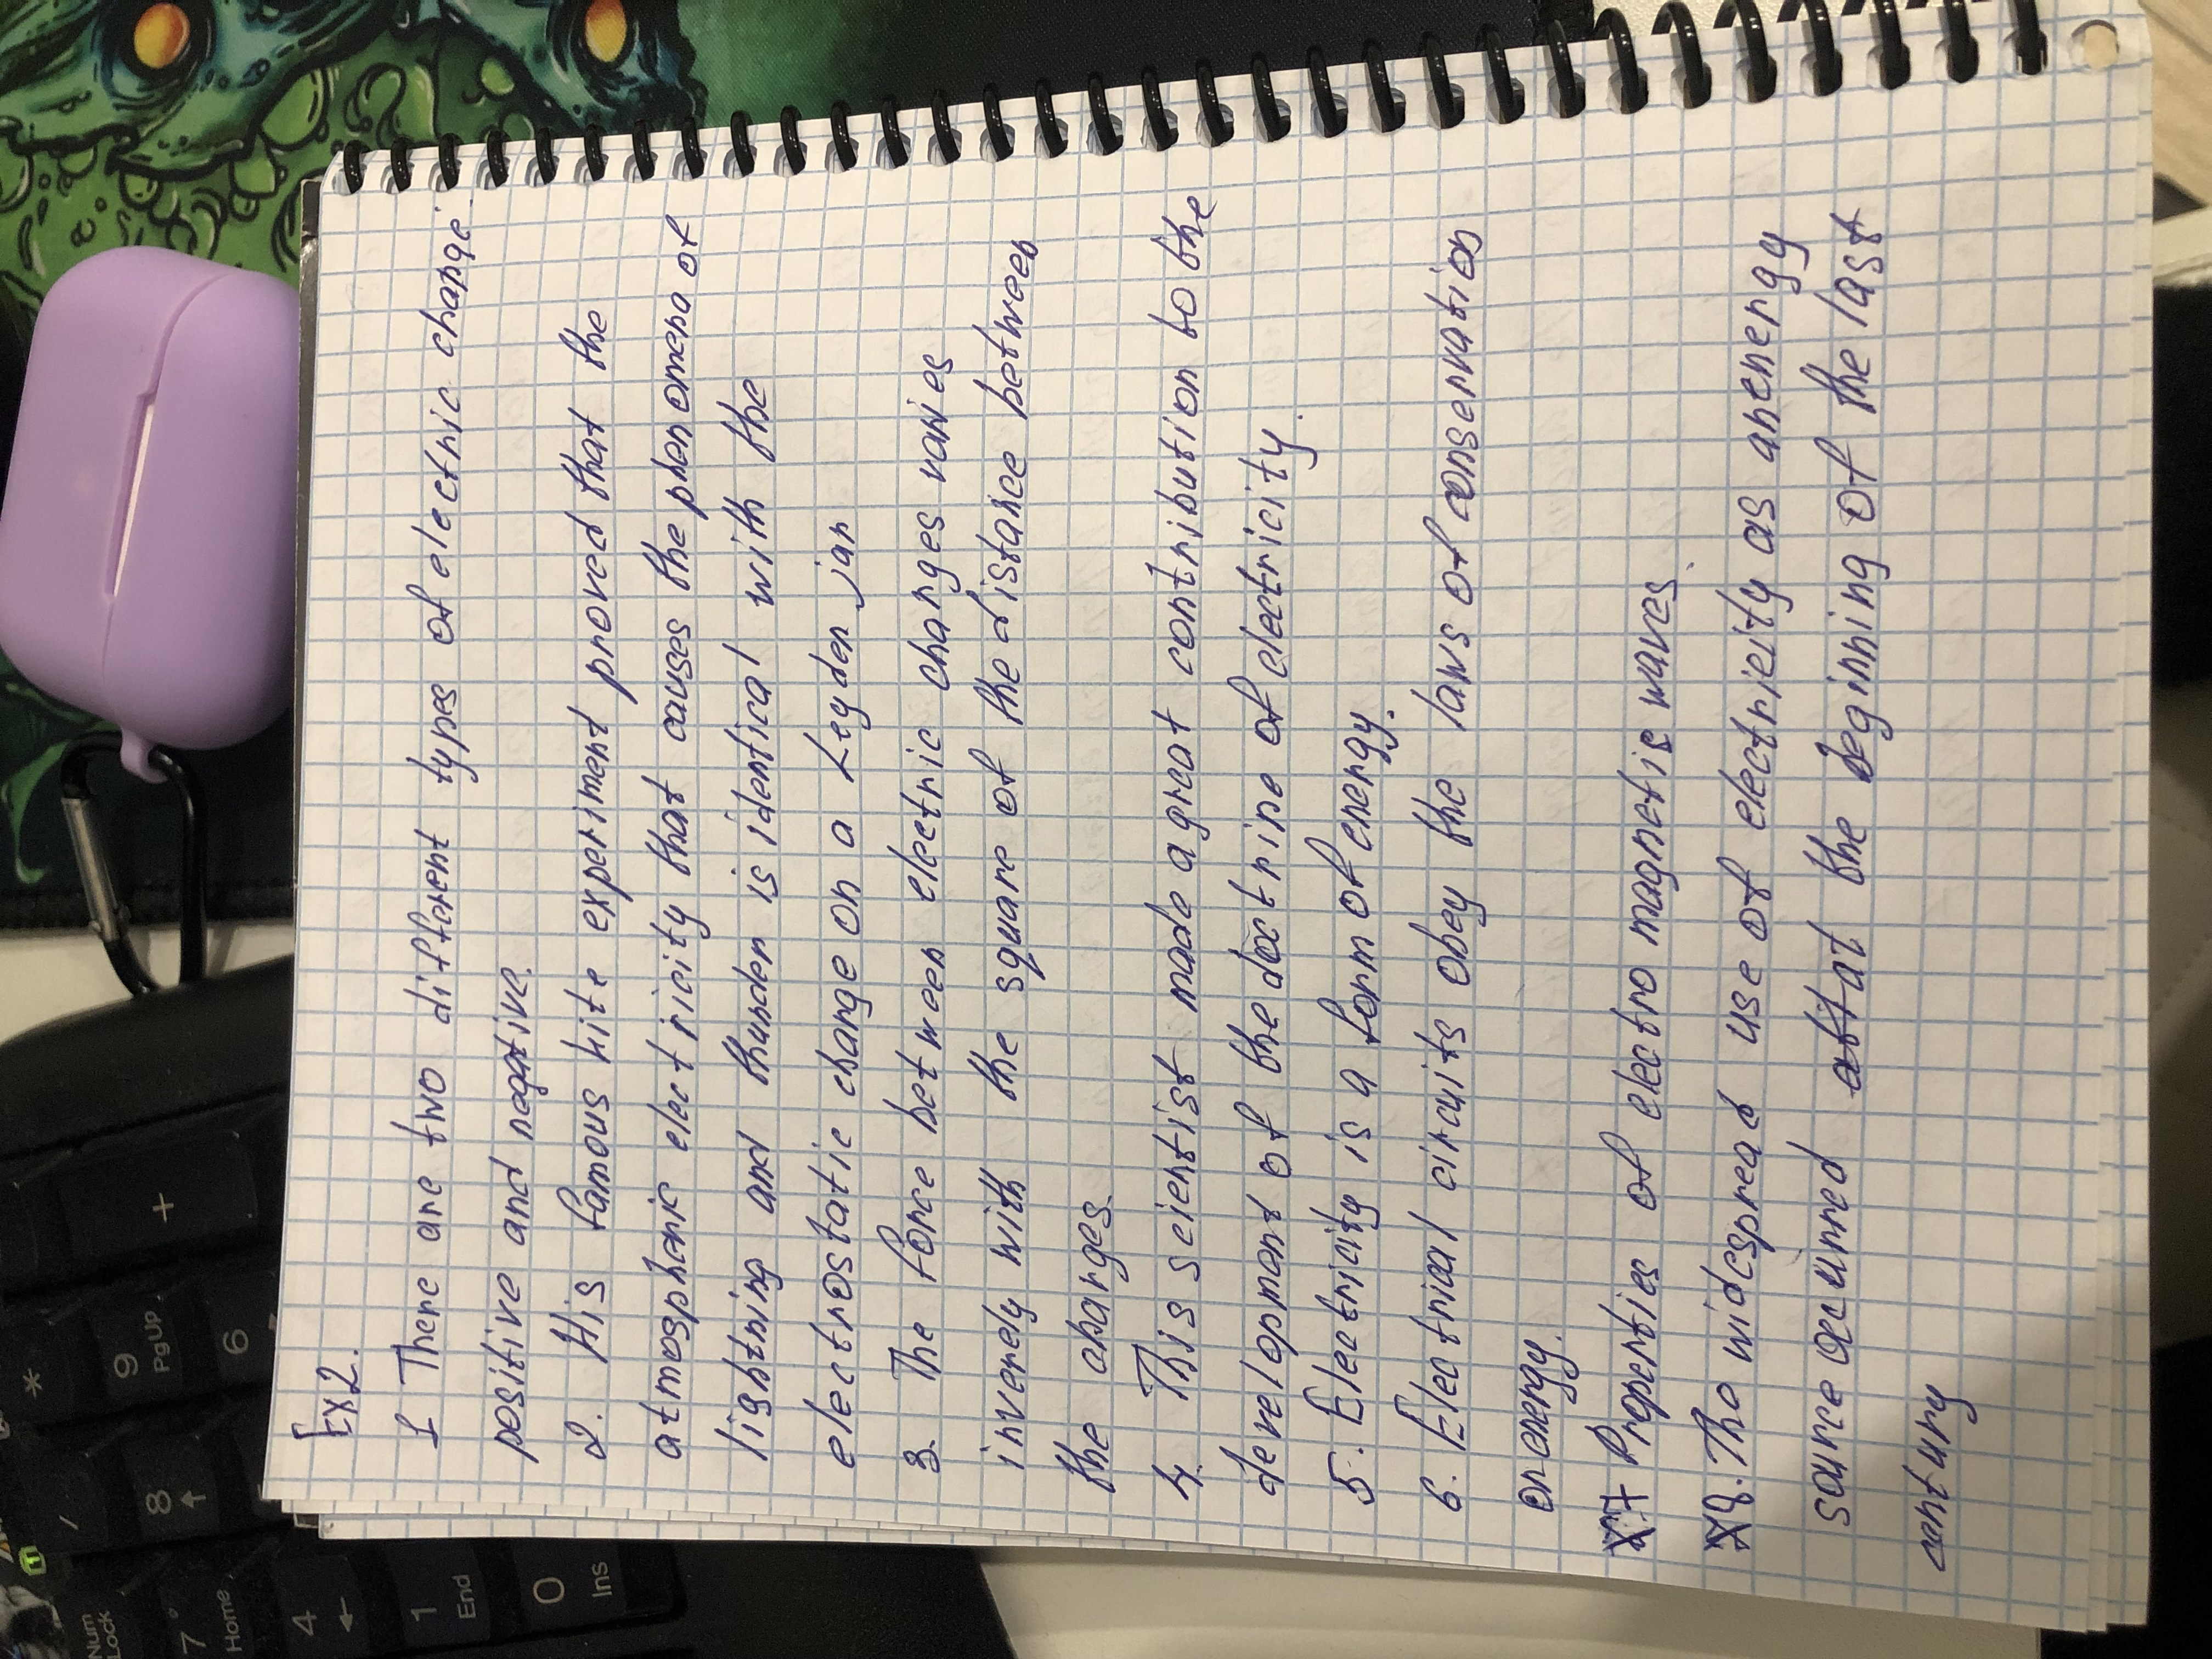 Num
Lock
/
*
7
Home
8
9
PgUp
+
4
6
1
End
0
Ins
Ex2.
1 There are two different types of electric change:
positive and negative.
2. His famous kite experiment proved that the
atmospheric electricity that causes the phenomena of
lightning and thunder is identical with the
electrostatic charge on a Leyden jar
3. The force between electric charges varies
inverely with the square of the distance between
the charges.
4. This scientist made a great contribution to the
development of the doctrine of electricity.
5. Electricity is a form of energy.
6. Electrical circuits obey the laws of conservation
on energy.
7 Properties of electro magnetic waves.
8. The widespread use of electricity as an energy
source occurred at the beginning of the last
century